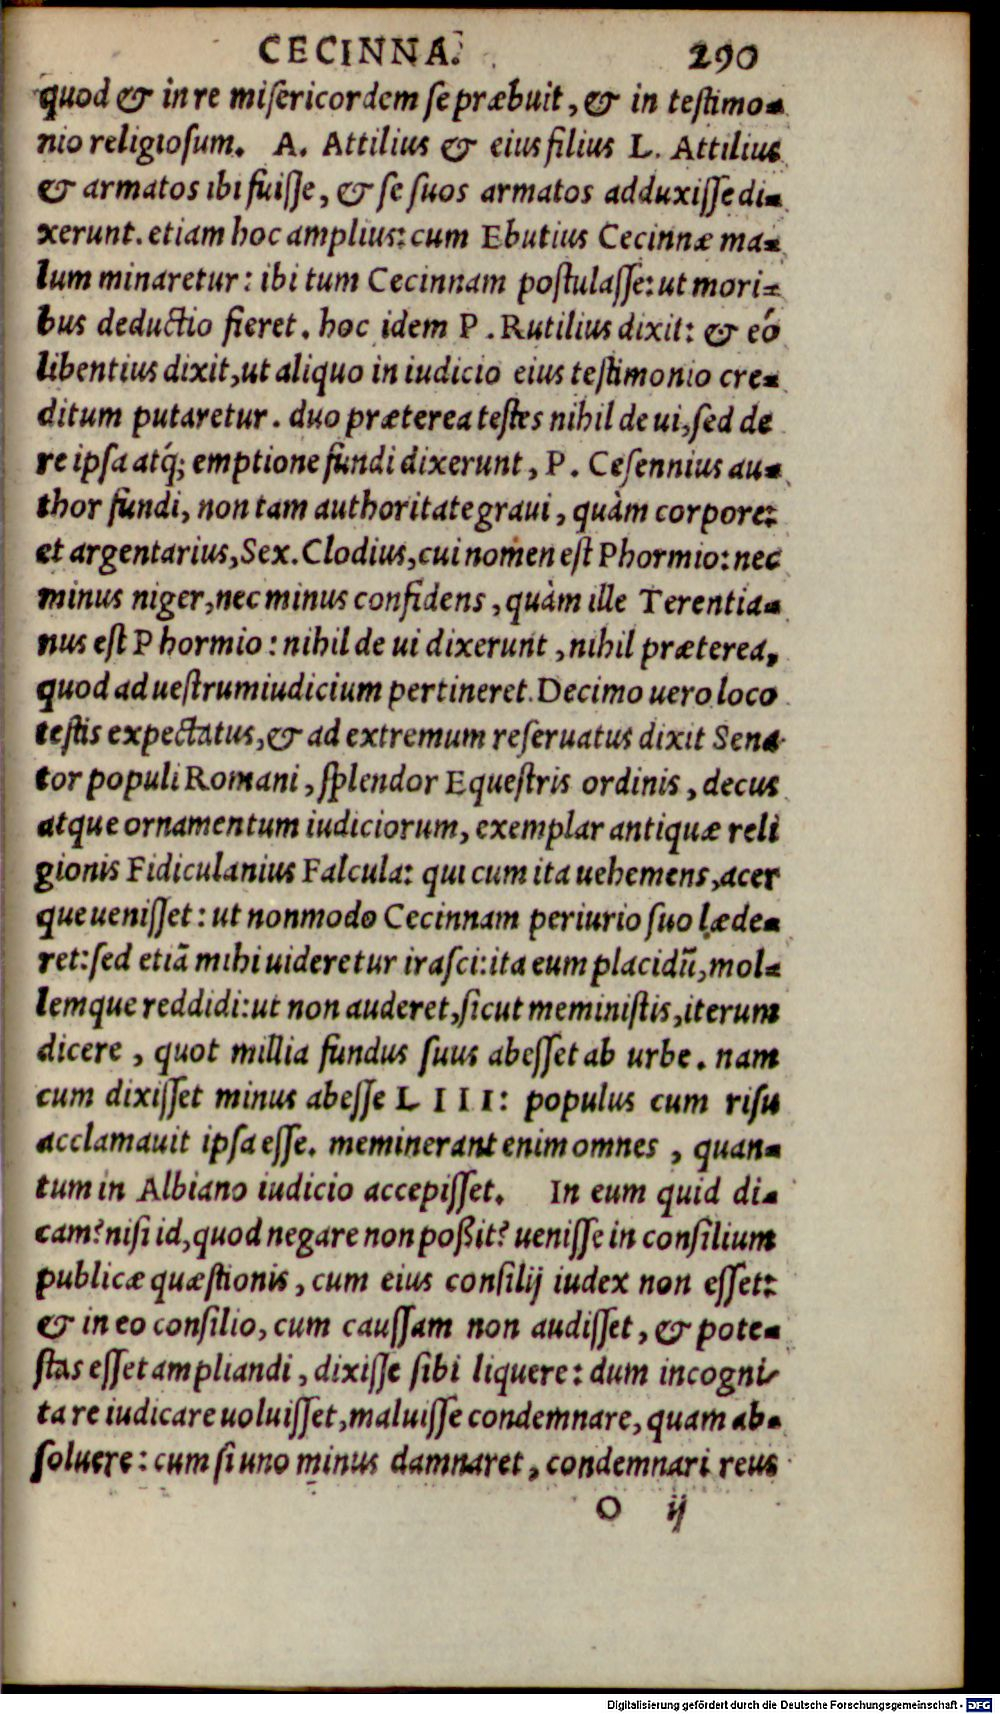 CECINNA. 290
quod & in re misericordem se præbuit, & in testimo-
nio religiosum. A. Attilius & eius filius L. Attilius
& armatos ibi fuisse, & se suos armatos adduxisse di-
xerunt. etiam hoc amplius: cum Ebutius Cecinnæ ma-
lum minaretur: ibi tum Cecinnam postulasse: ut mori-
bus deductio fieret. hoc idem P. Rutilius dixit: & eó
libentius dixit, ut aliquo in iudicio eius testimonio cre-
ditum putaretur. duo præterea testes nihil de ui, sed de
re ipsa atq́; emptione fundi dixerunt, P. Cesennius au-
thor fundi, non tam authoritate graui, quàm corpore:
et argentarius, Sex. Clodius, cui nomen est Phormio: nec
minus niger, nec minus confidens, quàm ille Terentia-
nus est Phormio: nihil de ui dixerunt, nihil præterea,
quod ad uestrum iudicium pertineret. Decimo uero loco
testis expectatus, & ad extremum reseruatus dixit Sena-
tor populi Romani, splendor Equestris ordinis, decus
atque ornamentum iudiciorum, exemplar antiquæ reli
gionis Fidiculanius Falcula: qui cum ita uehemens, acer
que uenisset: ut nonmodo Cecinnam periurio suo læde-
ret: sed etiã mihi uideretur irasci: ita eum placidũ, mol-
lemque reddidi: ut non auderet, sicut meministis, iterum
dicere, quot millia fundus suus abesset ab urbe. nam
cum dixisset minus abesse LIII: populus cum risu
acclamauit ipsa esse. meminerant enim omnes, quan-
tum in Albiano iudicio accepisset. In eum quid di-
cam? nisi id, quod negare non poßit? uenisse in consilium
publicæ quæstionis, cum eius consilij iudex non esset:
& in eo consilio, cum caussam non audisset, & pote-
stas esset ampliandi, dixisse sibi liquere: dum incogni-
ta re iudicare uoluisset, maluisse condemnare, quam ab-
soluere: cum si uno minus damnaret, condemnari reus
O ij
Digitalisierung gefördert durch die Deutsche Forschungsgemeinschaft - DFG